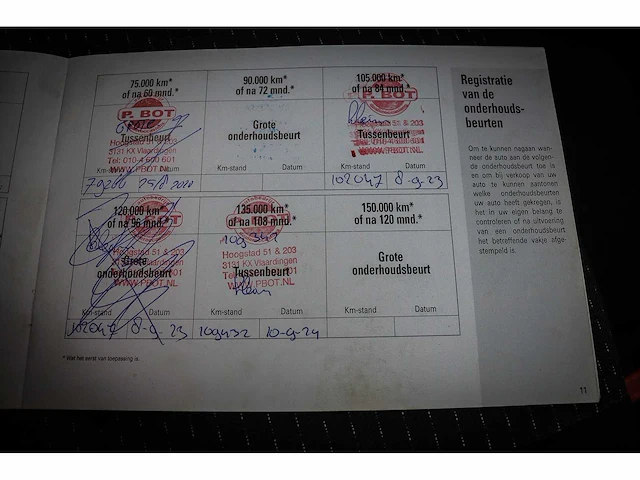 75.000 km*
of na 60 mnd.*
P. BOT
Tussenbeurt
Hoogstad 51 & 203
3131 KX Vlaardingen
Tel: 010-4 600 601
WWW.PBOT.NL
Km-stand Datum
90.000 km*
of na 72 mnd.*
Grote
onderhoudsbeurt
Km-stand Datum
105.000 km*
of na 84 mnd.*
P. BOT
Hoogstad 51 & 203
Tussenbeurt
WWW.PBOT.NL
Km-stand Datum
102047 8-9-23
120.000 km*
of na 96 mnd.*
Hoogstad 51 & 203
Grote
onderhoudsbeurt
WWW.PBOT.NL
Km-stand Datum
102047 8-9-23
135.000 km*
of na 108 mnd.*
Hoogstad 51 & 203
3131 KX Vlaardingen
Tussenbeurt
WWW.PBOT.NL
Km-stand Datum
109432 10-9-24
150.000 km*
of na 120 mnd.*
Grote
onderhoudsbeurt
Km-stand Datum
* Wat het eerst van toepassing is.
Registratie
van de
onderhouds-
beurten
Om te kunnen nagaan wan-
neer de auto aan de volgen-
de onderhoudsbeurt toe is
en om bij verkoop van uw
auto te kunnen aantonen
welke onderhoudsbeurten
uw auto heeft gekregen, is
het in uw eigen belang te
controleren of na uitvoering
van een onderhoudsbeurt
het betreffende vakje afge-
stempeld is.
11